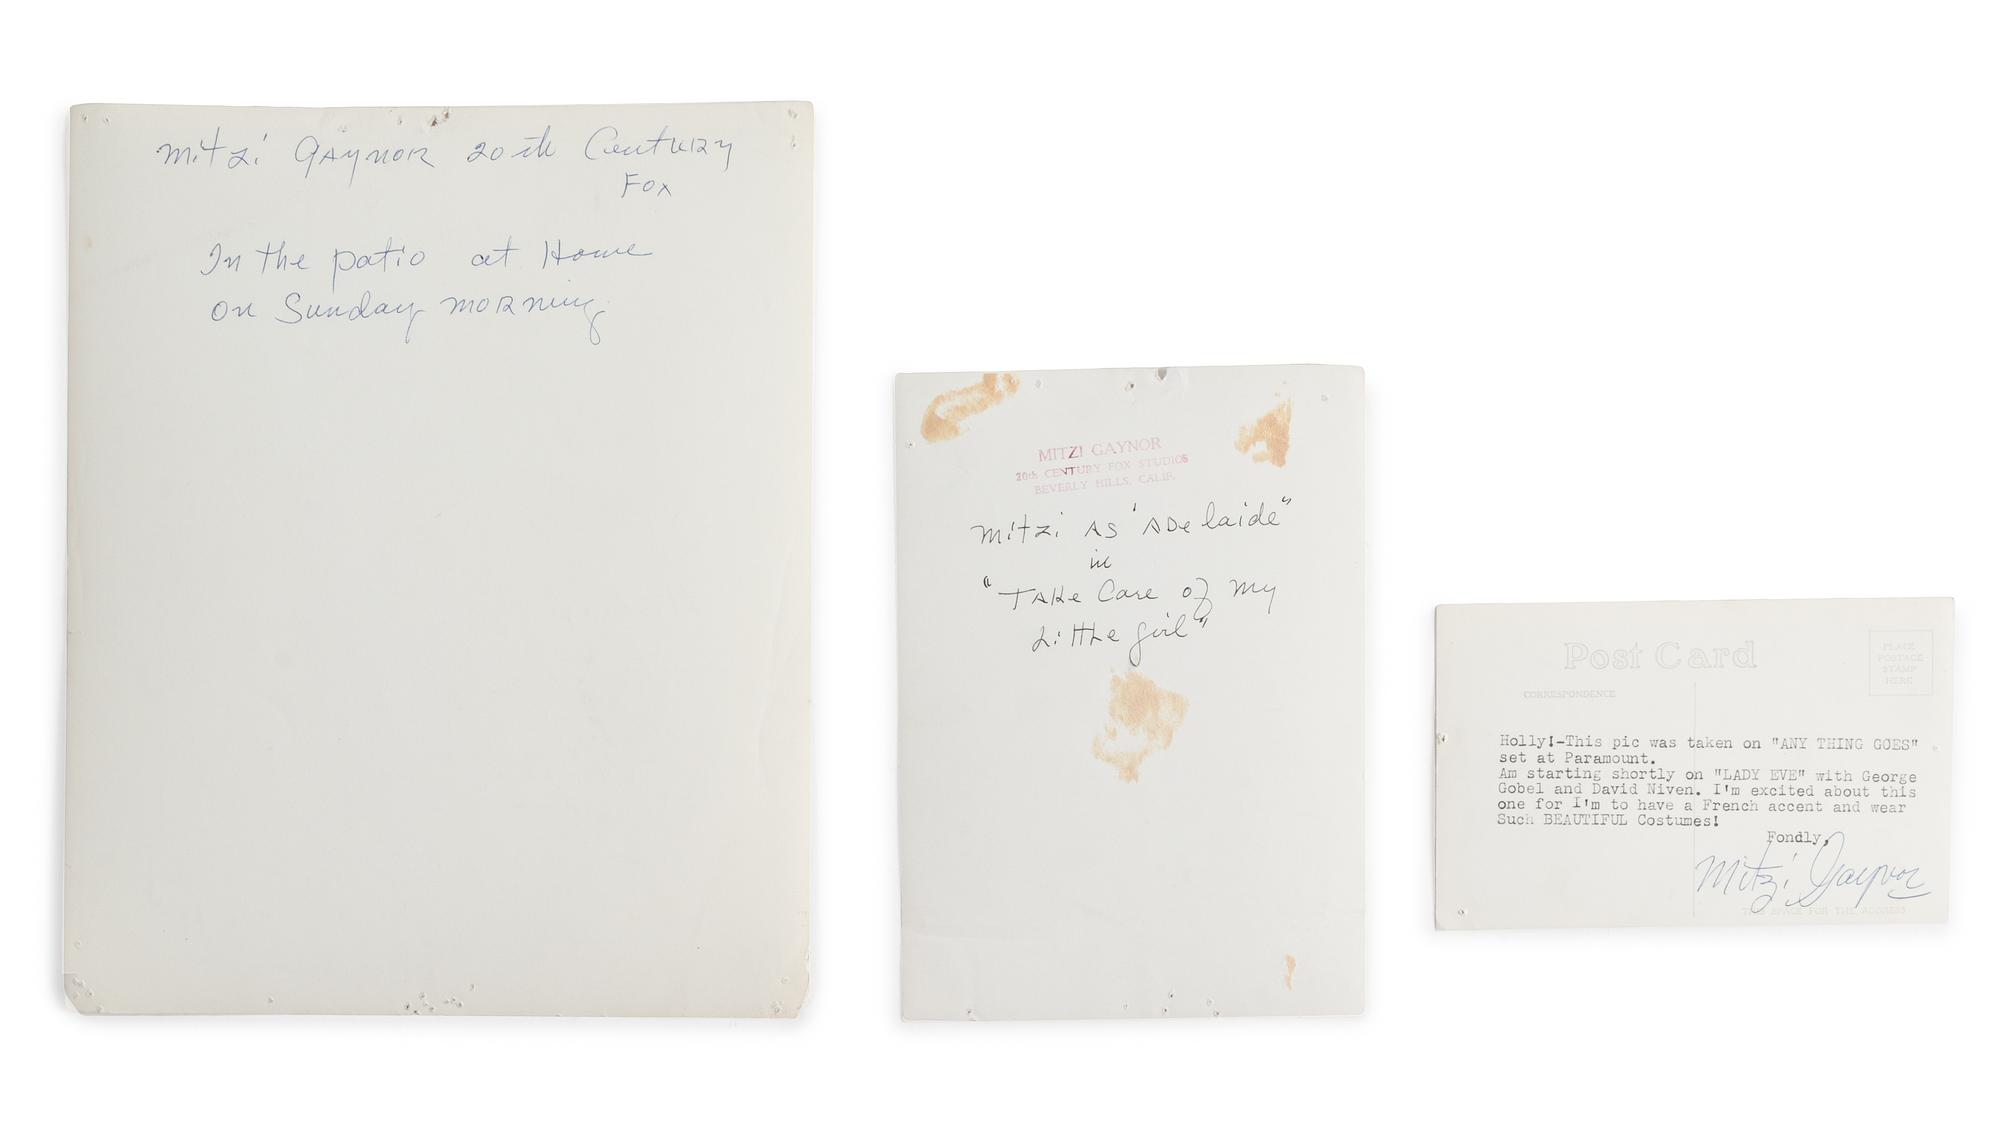 Mitzi Gaynor 20th Century
Fox
In the patio at Home
on Sunday morning
MITZI GAYNOR
20th CENTURY FOX STUDIOS
BEVERLY HILLS, CALIF.
Mitzi as 'Adelaide"
in
"Take Care of My
Little girl"
Post Card
PLACE
POSTAGE
STAMP
HERE
CORRESPONDENCE
Holly!-This pic was taken on "ANY THING GOES"
set at Paramount.
Am starting shortly on "LADY EVE" with George
Gobel and David Niven. I'm excited about this
one for I'm to have a French accent and wear
Such BEAUTIFUL Costumes!
Fondly,
Mitzi Gaynor
THIS SPACE FOR THE ADDRESS